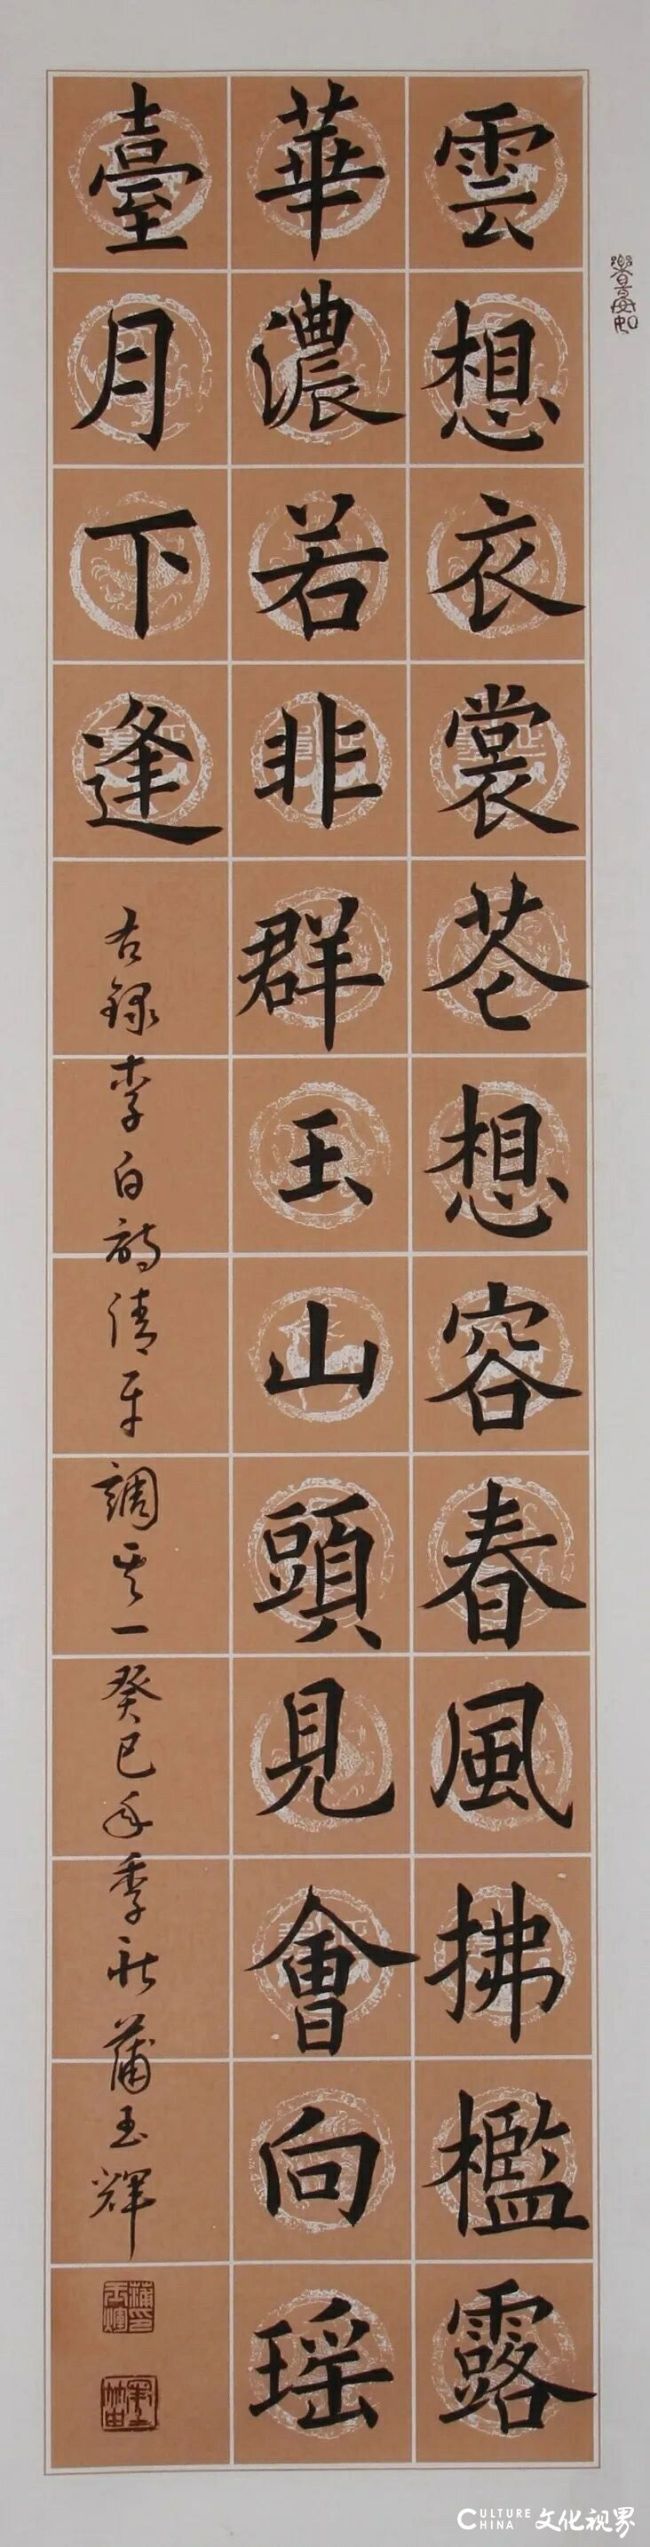 雲想衣裳苍想容春風拂檻露
華濃若非群玉山頭見會向瑶
臺月下逢
右録李白詩清平調其一癸巳年季秋蒲玉輝
蒲玉輝印
CULTURE CHINA 文化视界